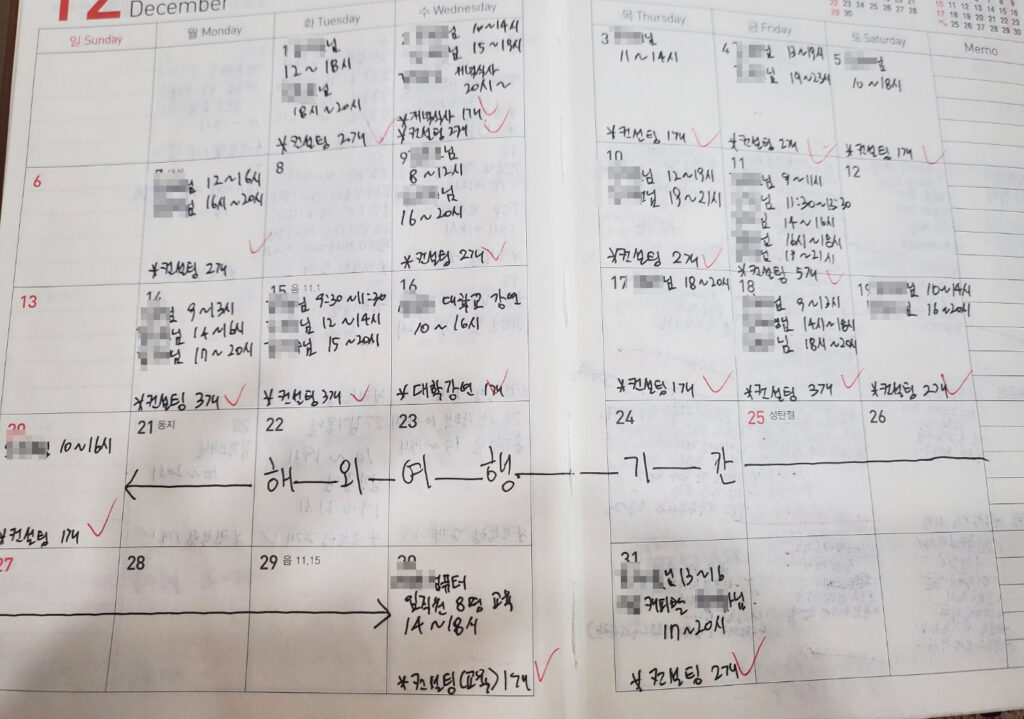 12 December
일 Sunday
월 Monday
화 Tuesday
수 Wednesday
목 Thursday
금 Friday
토 Saturday
Memo
1
님
12~18시
님
18시~20시
*컨설팅 2개
2
10~14시
님
15~19시
저녁식사
20시~
*저녁식사 1개
*컨설팅 2개
3
님
11~14시
*컨설팅 1개
4
님 13~19시
님 19~23시
*컨설팅 2개
5
님
10~18시
*컨설팅 1개
6
7
님 12~16시
님 16시~20시
*컨설팅 2개
8
9
님
8~12시
님
16~20시
*컨설팅 2개
10
님 12~19시
님 19~21시
*컨설팅 2개
11
님 9~11시
님 11:30~13:30
님 14~16시
님 16시~18시
님 19~21시
*컨설팅 5개
12
13
님 9~13시
님 14~16시
님 17~20시
*컨설팅 3개
15 음 11.1
님 9:30~11:30
님 12~14시
님 15~20시
*컨설팅 3개
16
대학교 강연
10~16시
*대학강연 1개
17
님 18~20시
*컨설팅 1개
18
님 9~13시
님 14시~18시
님 18시~20시
*컨설팅 3개
19
님 10~14시
님 16~20시
*컨설팅 2개
20
님 10~16시
*컨설팅 1개
21 동지
22
23
24
25 성탄절
26
해외여행기간
27
28
29 음 11.15
30
컴퓨터
임직원 8명 교육
14~18시
*컨설팅(교육) 1개
31
님 13~16
캐피탈
님
17~20시
*컨설팅 2개